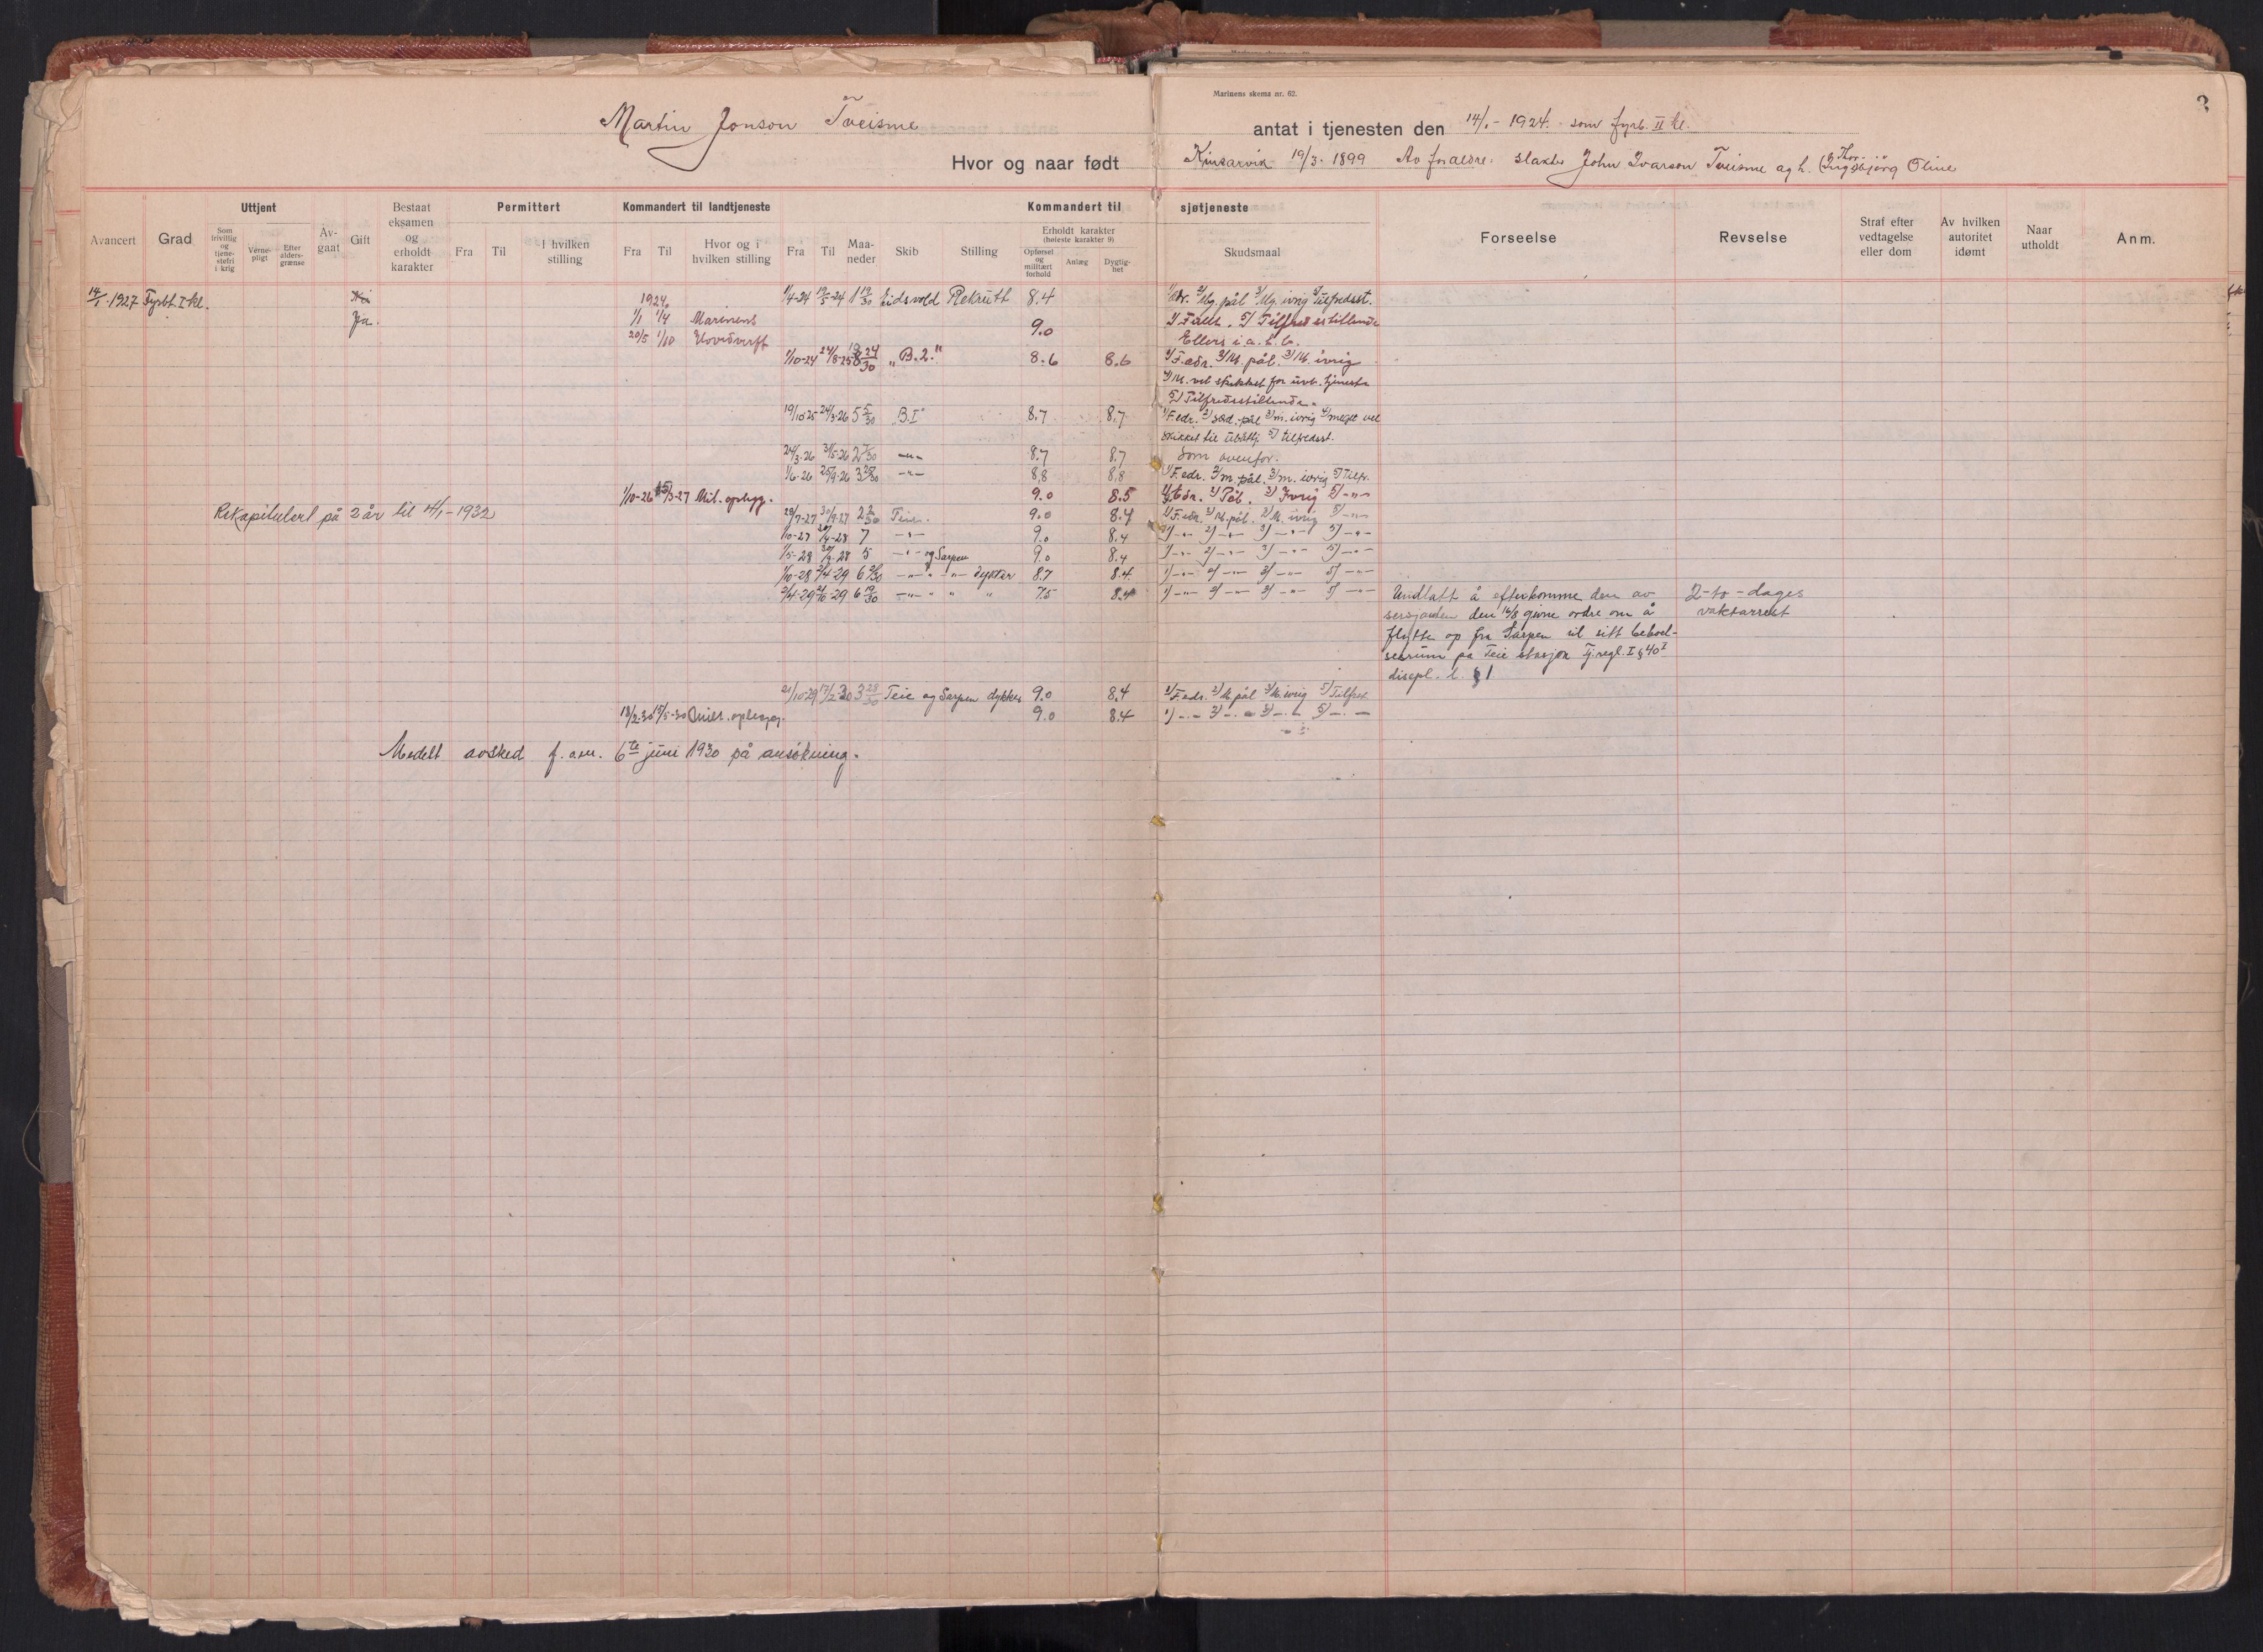 Marinens skema nr. 62.
3
Martin Jonson Tveisme antat i tjenesten den 14/1 - 1924. som fyrb. II kl.
Hvor og naar født Kinsarvik 19/3. 1899 Av foraeldre: John Ivarson Tveisme og h. (Ingebjörg Oline
Thor
Uttjent Permittert Kommandert til landtjeneste Kommandert til sjøtjeneste
Avancert Grad Som frivillig og tjenestefri i krig Vernepligt Efter aldersgrænse Av-gaat Gift Bestaat eksamen og erholdt karakter Fra Til I hvilken stilling Fra Til Hvor og i hvilken stilling Fra Til Maa-neder Skib Stilling Erholdt karakter (høieste karakter 9) Opførsel og militært forhold Anlæg Dygtig-het Skudsmaal Forseelse Revselse Straf efter vedtagelse eller dom Av hvilken autoritet idømt Naar utholdt Anm.
14/1-1927 Fyrbt. I kl. Nei 1924. 1/4-24 19/5-24 1 19/30 Eidsvold Rekrutt 8.4 1/ Ædr. 2/ Mg. pål 3/ Mg. ivrig 5/ Tilfredsst.
Ja. 1/1 1/4 Marinens 9.0 5/ Tilfredsstillende
20/5 1/10 Hovedverft Ellers i a. h. b.
1/10-24 24/8-25 "B.2." 8.6 8.6 1/ F. ædr. 2/ M. pål. 3/ M. ivrig
4/ M. vel skikket for uvb. tjeneste
5/ Tilfredsstillende.
19/10 25 24/3-26 5 5/30 B.I" 8.7 8.7 1/ F. edr. 2/ sæd. pål 3/ m. ivrig 4/ meget vel
skikket til ubåttj. 5/ tilfredsst.
24/3-26 31/5-26 2 7/30 -"- 8.7 8.7 Som ovenfor.
1/6-26 25/9-26 3 25/30 -"- 8,8 8,8 1/ F. edr. 2/ m. pål. 3/ m. ivrig 5/ Tilfr.
1/10-26 15/3-27 Mil. oplegg. 9.0 8.5 1/ F. edr. 2/ Pål. 3/ Ivrig 5/ -"-
Rekapitulert på 3 år til 14/1-1932 29/7-27 30/9-27 2 2/30 Teie. 9.0 8.4 1/ F. edr. 2/ M. pål. 3/ M. ivrig 5/ -"-
1/10-27 7 -"- 9.0 8.4 1/ -"- 2/ -"- 3/ -"- 5/ -"-
1/5-28 30/9-28 5 -"- og Sarpen 9.0 8.4 1/ -"- 2/ -"- 3/ -"- 5/ -"-
1/10-28 2/4-29 6 2/30 -"- " -"- dykker 8.7 8.4. 1/ -"- 2/ -"- 3/ -"- 5/ -"-
2/4-29 21/10-29 6 19/30 -"- " " " 7.5 8.4 1/ -"- 2/ -"- 3/ -"- 5/ -"- Undlatt å efterkomme den av 2-to-dages
sersjanten den 16/8 givne ordre om å vaktarrest
flytte op fra Sarpen til sitt beboel-
sesrum på Teie stasjon Tj. regl. I § 40 I
discpl. l. § 1
21/10-29 17/2-30 3 28/30 Teie og Sarpen dykker 9.0 8.4 1/ F. edr. 2/ M. pål 3/ M. ivrig 5/ Tilfred.
18/2-30 15/5-30 oplegg. 9.0 8.4 1/ -"- 2/ -"- 3/ -"- 5/ -"-
Medelt avsked f. o. m. 6te juni 1930 på ansökning.